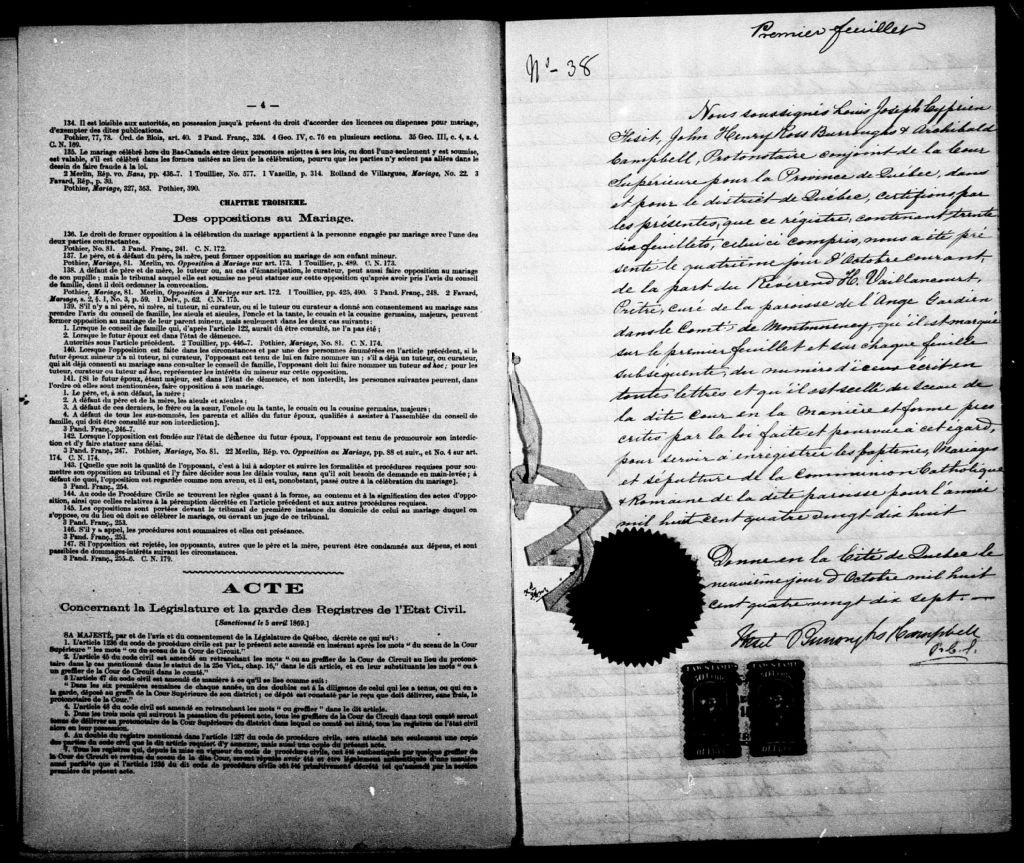 — 4 —
134. Il est loisible aux autorités, en possession jusqu'à présent du droit d'accorder des licences ou dispenses pour mariage,
d'exempter des dites publications.
Pothier, 77, 78. Ord. de Blois, art. 40. 2 Pand. Franç., 324. 4 Geo. IV, c. 76 en plusieurs sections. 35 Geo. III, c. 4, s. 4.
C. N. 169.
135. Le mariage célébré hors du Bas-Canada entre deux personnes sujettes à ses lois, ou dont l'une seulement y est soumise,
est valable, s'il est célébré dans les formes usitées au lieu de la célébration, pourvu que les parties n'y soient pas allées dans le
dessin de faire fraude à la loi.
2 Merlin, Rép. vo. Bans, pp. 436-7. 1 Touillier, No. 577. 1 Vazeille, p. 314. Rolland de Villargues, Mariage, No. 22. 3
Favard, Rép., p. 30.
Pothier, Mariage, 327, 363. Pothier, 390.
CHAPITRE TROISIEME.
Des oppositions au Mariage.
136. Le droit de former opposition à la célébration du mariage appartient à la personne engagée par mariage avec l'une des
deux parties contractantes.
Pothier, No. 81. 3 Pand. Franç., 241. C. N. 172.
137. Le père, et à défaut du père, la mère, peut former opposition au mariage de son enfant mineur.
Pothier, Mariage, 81. Merlin, vo. Opposition à Mariage sur art. 173. 1 Touillier, p. 489. C. N. 173.
138. A défaut de père et de mère, le tuteur ou, au cas d'émancipation, le curateur, peut aussi faire opposition au mariage
de son pupille ; mais le tribunal auquel elle est soumise ne peut statuer sur cette opposition qu'après avoir pris l'avis du conseil
de famille, dont il doit ordonner la convocation.
Pothier, Mariage, 81. Merlin, Opposition à Mariage sur art. 172. 1 Touillier, pp. 425, 490. 3 Pand. Franç., 248. 2 Favard,
Mariage, s. 2, § 1, No. 3, p. 59. 1 Delv., p. 62. C. N. 175.
139. S'il n'y a ni père, ni mère, ni tuteur, ni curateur, ou si le tuteur ou curateur a donné son consentement au mariage sans
prendre l'avis du conseil de famille, les aïeuls et aïeules, l'oncle et la tante, le cousin et la cousine germains, majeurs, peuvent
former opposition au mariage de leur parent mineur, mais seulement dans les deux cas suivants :
1. Lorsque le conseil de famille qui, d'après l'article 122, aurait dû être consulté, ne l'a pas été ;
2. Lorsque le futur époux est dans l'état de démence.
Autorités sous l'article précédent. 2 Touillier, pp. 446-7. Pothier, Mariage, No. 81. C. N. 174.
140. Lorsque l'opposition est faite dans les circonstances et par une des personnes énumérées en l'article précédent, si le
futur époux mineur n'a ni tuteur, ni curateur, l'opposant est tenu de lui en faire nommer un ; s'il a déjà un tuteur, ou curateur,
qui ait déjà consenti au mariage sans consulter le conseil de famille, l'opposant doit lui faire nommer un tuteur ad hoc ; pour les
tuteur, curateur ou tuteur ad hoc, représenter les intérêts du mineur sur cette opposition.
141. [Si le futur époux, étant majeur, est dans l'état de démence, et non interdit, les personnes suivantes peuvent, dans
l'ordre où elles sont mentionnées, faire opposition à son mariage.
1. Le père, et, à son défaut, la mère ;
2. A défaut du père et de la mère, les aïeuls et aïeules ;
3. A défaut de ces derniers, le frère ou la sœur, l'oncle ou la tante, le cousin ou la cousine germains, majeurs ;
4. A défaut de tous les sus-nommés, les parents et alliés du futur époux, qualifiés à assister à l'assemblée du conseil de
famille, qui doit être consulté sur son interdiction].
3 Pand. Franç., 246-7.
142. Lorsque l'opposition est fondée sur l'état de démence du futur époux, l'opposant est tenu de promouvoir son interdic-
tion et d'y faire statuer sans délai.
3 Pand. Franç., 247. Pothier, Mariage, No. 81. 22 Merlin, Rép. vo. Opposition au Mariage, pp. 88 et suiv., et No. 4 sur art.
174. C. N. 174.
143. [Quelle que soit la qualité de l'opposant, c'est à lui à adopter et suivre les formalités et procédures requises pour sou-
mettre son opposition au tribunal et l'y faire décider sous les délais voulus, sans qu'il soit besoin de demande en main-levée ; à
défaut de quoi, l'opposition est regardée comme non avenu, et il est, nonobstant, passé outre à la célébration du mariage].
3 Pand. Franç., 254.
144. Au code de Procédure Civile se trouvent les règles quant à la forme, au contenu et à la signification des actes d'oppo-
sition, ainsi que celles relatives à la péremption décrétée en l'article précédent et aux autres procédures requises.
145. Les oppositions sont portées devant le tribunal de première instance du domicile de celui au mariage duquel on
s'oppose, ou du lieu où doit se célébrer le mariage, ou devant un juge de ce tribunal.
3 Pand. Franç., 253.
146. S'il y a appel, les procédures sont sommaires et elles ont préséance.
3 Pand. Franç., 253.
147. Si l'opposition est rejetée, les opposants, autres que le père et la mère, peuvent être condamnés aux dépens, et sont
passibles de dommages-intérêts suivant les circonstances.
3 Pand. Franç., 255-6. C. N. 179.
ACTE
Concernant la Législature et la garde des Registres de l'Etat Civil.
[Sanctionné le 5 avril 1869.]
SA MAJESTÉ, par et de l'avis et du consentement de la Législature de Québec, décrète ce qui suit :
1. L'article 1236 du code de procédure civile est par le présent acte amendé en insérant après les mots " du sceau de la Cour
Supérieure " les mots " ou du sceau de la Cour de Circuit."
2. L'article 45 du code civil est amendé en retranchant les mots " ou au greffier de la Cour de Circuit au lieu du protono-
taire dans le cas mentionné dans le statut de la 25e Vict., chap. 16," dans le dit article, et en leur substituants les mots " ou à
un greffier de la Cour de Circuit dans le comté."
3 L'article 47 du code civil est amendé de manière à ce qu'il se lise comme suit :
" Dans les six premières semaines de chaque année, un des doubles est à la diligence de celui qui les a tenus, ou qui en a
la garde, déposé au greffe de la Cour Supérieure de son district ; ce dépôt est constaté par le reçu que doit délivrer, sans frais, le
protonotaire de la Cour."
4. L'article 48 du code civil est amendé en retranchant les mots " ou greffier " dans le dit article.
5. Dans les trois mois qui suivront la passation du présent acte, tous les greffiers de la Cour de Circuit dans tout comté seront
tenus de délivrer au protonotaire de la Cour Supérieure du district dans lequel ce comté est situé, tous les registres de l'état civil
alors en leur possession.
6. Au double du registre mentionné dans l'article 1237 du code de procédure civile, sera attaché non seulement une copie
des parties du code civil que le dit article requiert d'y annexer, mais aussi une copie du présent acte.
7. Tous les registres qui, depuis la mise en vigueur du code de procédure civile, ont été authentiqués par quelque greffier de
la Cour de Circuit et revêtus du sceau de la dite Cour, seront réputés avoir été et être légalement authentiqués d'une manière
aussi parfaite que si l'article 1236 du dit code de procédure civile eût été primitivement décrété tel qu'amendé par la section
première du présent acte.
Premier feuillet
No - 38
Nous soussignés Louis Joseph Cyprien
Fiset, John Henry Ross Burroughs & Archibald
Campbell, Protonotaire conjoint de la Cour
Supérieure pour la Province de Québec, dans
et pour le district de Québec, certifions par
les présentes, que ce régistre, contenant trente
six feuillets, celui ci compris, nous a été pré
senté le quatrième jour d'Octobre courant
de la part du Révérend H. Vaillancourt,
Prêtre, curé de la paroisse de l'Ange Gardien
dans le Comté de Montmorency, qu'il est marqué
sur le premier feuillet et sur chaque feuille
subséquente, du numéro d'iceux écrit en
toutes lettres et qu'il est scellé du sceau de
la dite Cour en la manière et forme pres
crites par la loi faite et pourvue à cet égard,
pour servir à enregistrer les baptêmes, Mariages
et sépulture de la Communion Catholique
& Romaine de la dite paroisse pour l'année
mil huit cent quatre vingt dix huit
Donné en la Cité de Québec le
neuvième jour d'Octobre mil huit
cent quatre vingt dix sept. —
Fiset Burroughs Campbell
P. C. S.
LAW STAMP